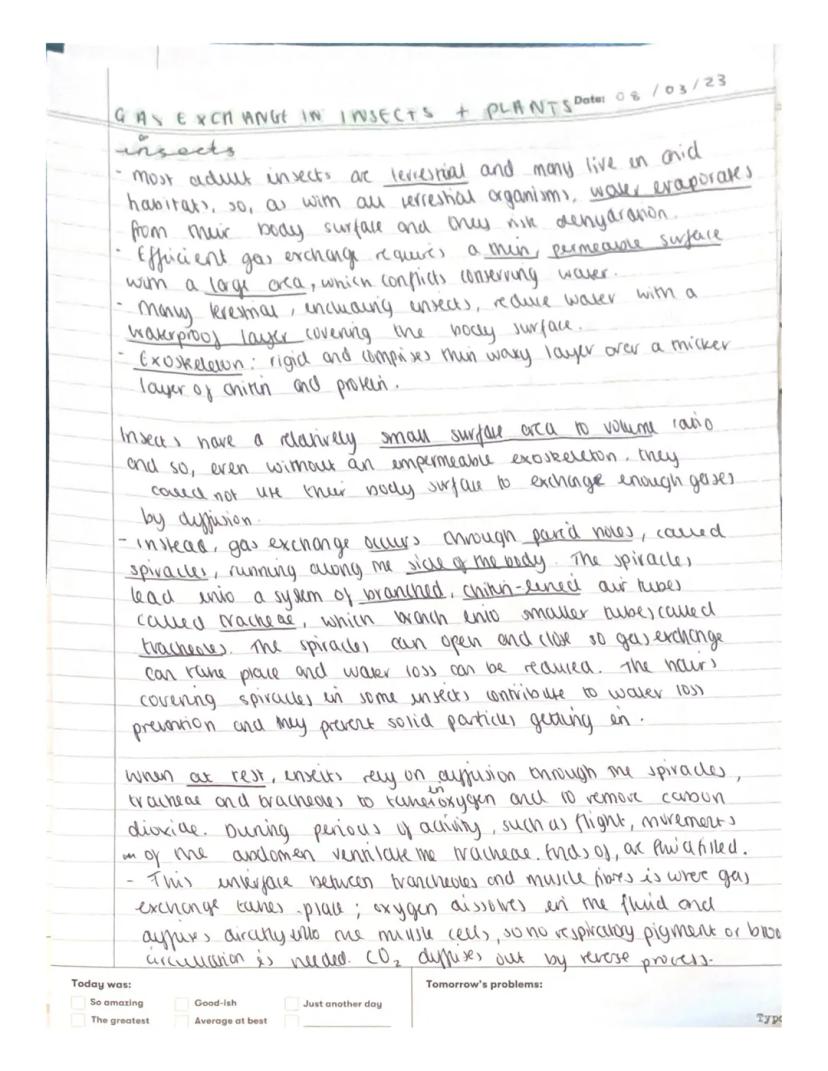 GAS EXCHANGE IN INSECTS + PLANTS Date: 08/03/23
insects
- most adult insects are terrestrial and many live in arid
habitats, so, as with all terrestrial organisms, water evaporates
from their body surface and they risk dehydration.
- Efficient gas exchange requires a thin, permeable surface
with a large area, which conflicts conserving water.
- Many terestrial, including insects, reduce water with a
waterproof layer covering the body surface.
- Exoskeleton: rigid and comprises thin waxy layer over a thicker
layer of chitin and protein.
Insects have a relatively small surface area to volume ratio
and so, even without an impermeable exoskeleton, they
could not use their body surface to exchange enough gases
by diffusion.
- instead, gas exchange occurs through pair'd holes, called
spiracles, running along the side of the body. The spiracles
lead into a system of branched, chitin-lined air tubes
called tracheae, which branch into smaller tubes called
tracheoles. The spiracles can open and close so gas exchange
can take place and water loss can be reduced. The hairs
covering spiracles in some insects contribute to water loss
prevention and they prevent solid particles getting in.
When at rest, insects rely on diffusion through the spiracles,
tracheae and tracheoles to take in oxygen and to remove carbon
dioxide. During periods of activity, such as flight, movements
of the abdomen ventilate the tracheae. Ends of, ae fluid filled.
- This interface between trancheoles and muscle fibres is wree gas
exchange takes place; oxygen dissolves in the fluid and
diffuses directly into the muscle cells, so no respiratory pigment or blood
circulation is needed. CO₂ diffuses out by reverse process.
Today was: Tomorrow's problems:
So amazing Good-ish Just another day
The greatest Average at best